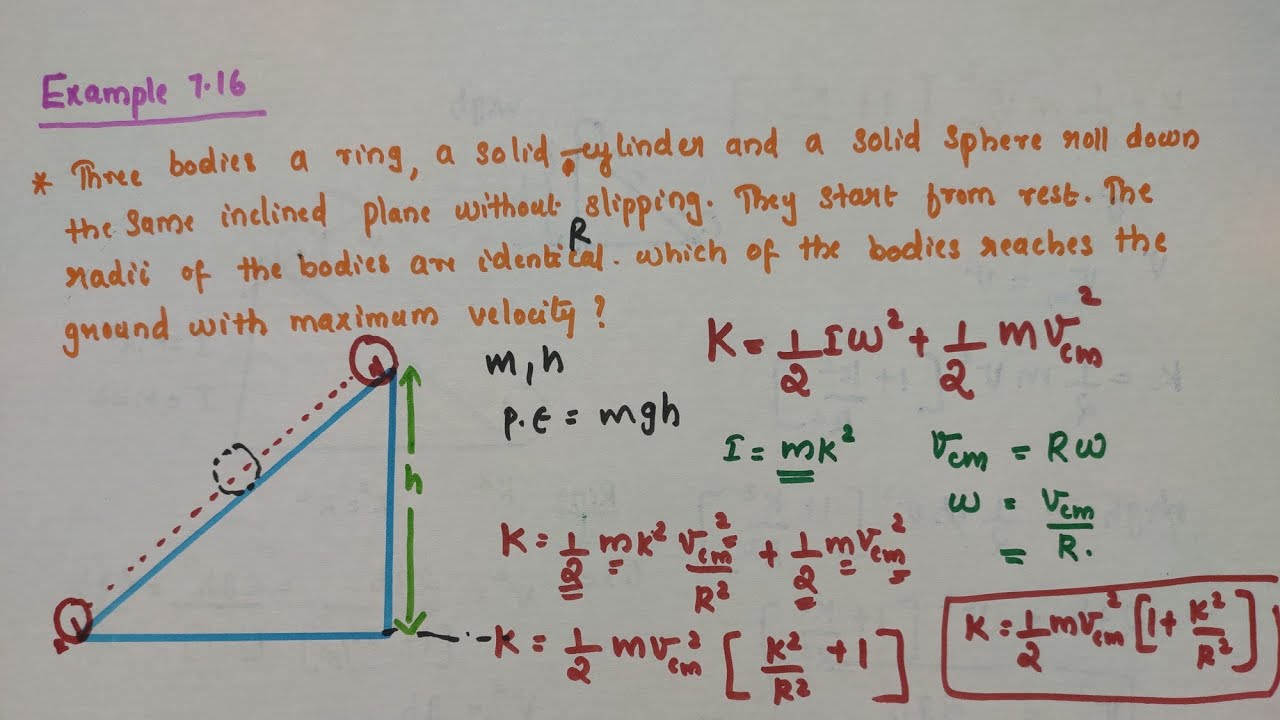 Example 7.16
* Three bodies a ring, a solid cylinder and a solid sphere roll down
the same inclined plane without slipping. They start from rest. The
radii of the bodies are identical. which of the bodies reaches the
R
ground with maximum velocity?
m, h
P.E = mgh
h
K = 1/2 Iω² + 1/2 mv²cm
I = mk²
vcm = Rω
ω = vcm/R.
K = 1/2 mk² v²cm/R² + 1/2 mv²cm
K = 1/2 mv²cm [k²/R² + 1]
K = 1/2 mv²cm [1 + k²/R²]